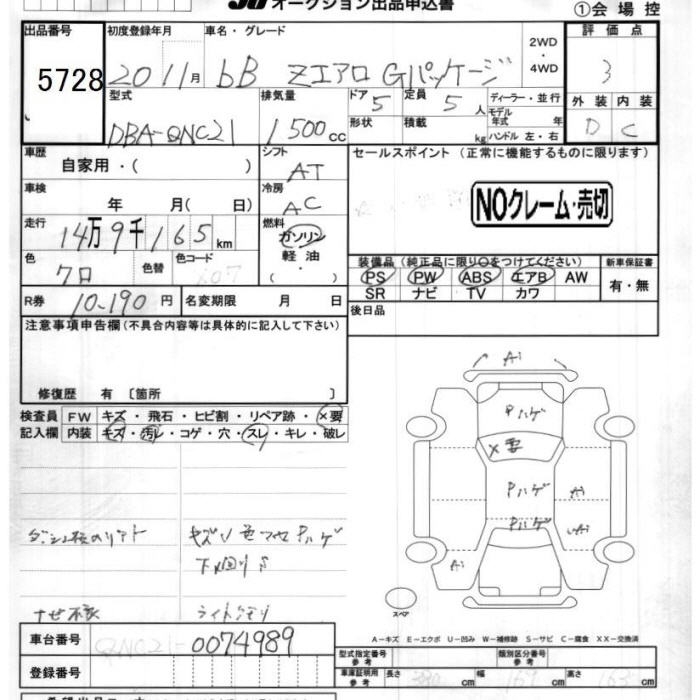 オークション出品申込書
①会場控
出品番号
5728
初度登録年月
2011月
車名・グレード
bB ZエアロGパッケージ
2WD
・
4WD
評価点
3
型式
DBA-QNC21
排気量
1500cc
ドア 5
定員 5人
ディーラー・並行
モデル年式 年式
形状
積載 kg
ハンドル 左・右
外装 内装
D C
車歴
自家用・( )
シフト
AT
セールスポイント (正常に機能するものに限ります)
車検
年 月( 日)
冷房
AC
NOクレーム・売切
走行
14万9千165km
燃料
ガソリン
軽油・
( )
色
クロ
色替
色コード
装備品 (純正品に限り○をつけてください)
新車保証書
PS PW ABS エアB AW
SR ナビ TV カワ
有・無
R券
10-190円
名変期限 月 日
後日品
注意事項申告欄(不具合内容等は具体的に記入して下さい)
修復歴 有 〔箇所 〕
検査員
記入欄
FW キズ・飛石・ヒビ割・リペア跡・×要
内装 キズ・汚レ・コゲ・穴・スレ・キレ・破レ
A1
Pハゲ
×要
Pハゲ
Pハゲ
A1
A1
A1
キズU色アセPハゲ
下回りS
スペア
A-キズ E-エクボ U-凹み W-補修跡 S-サビ C-腐食 XX-交換済
車台番号
QNC21-0074989
登録番号
型式指定番号 参考
類別区分番号 参考
車庫証明用 参考
長さ 380cm
幅 169cm
高さ 163cm